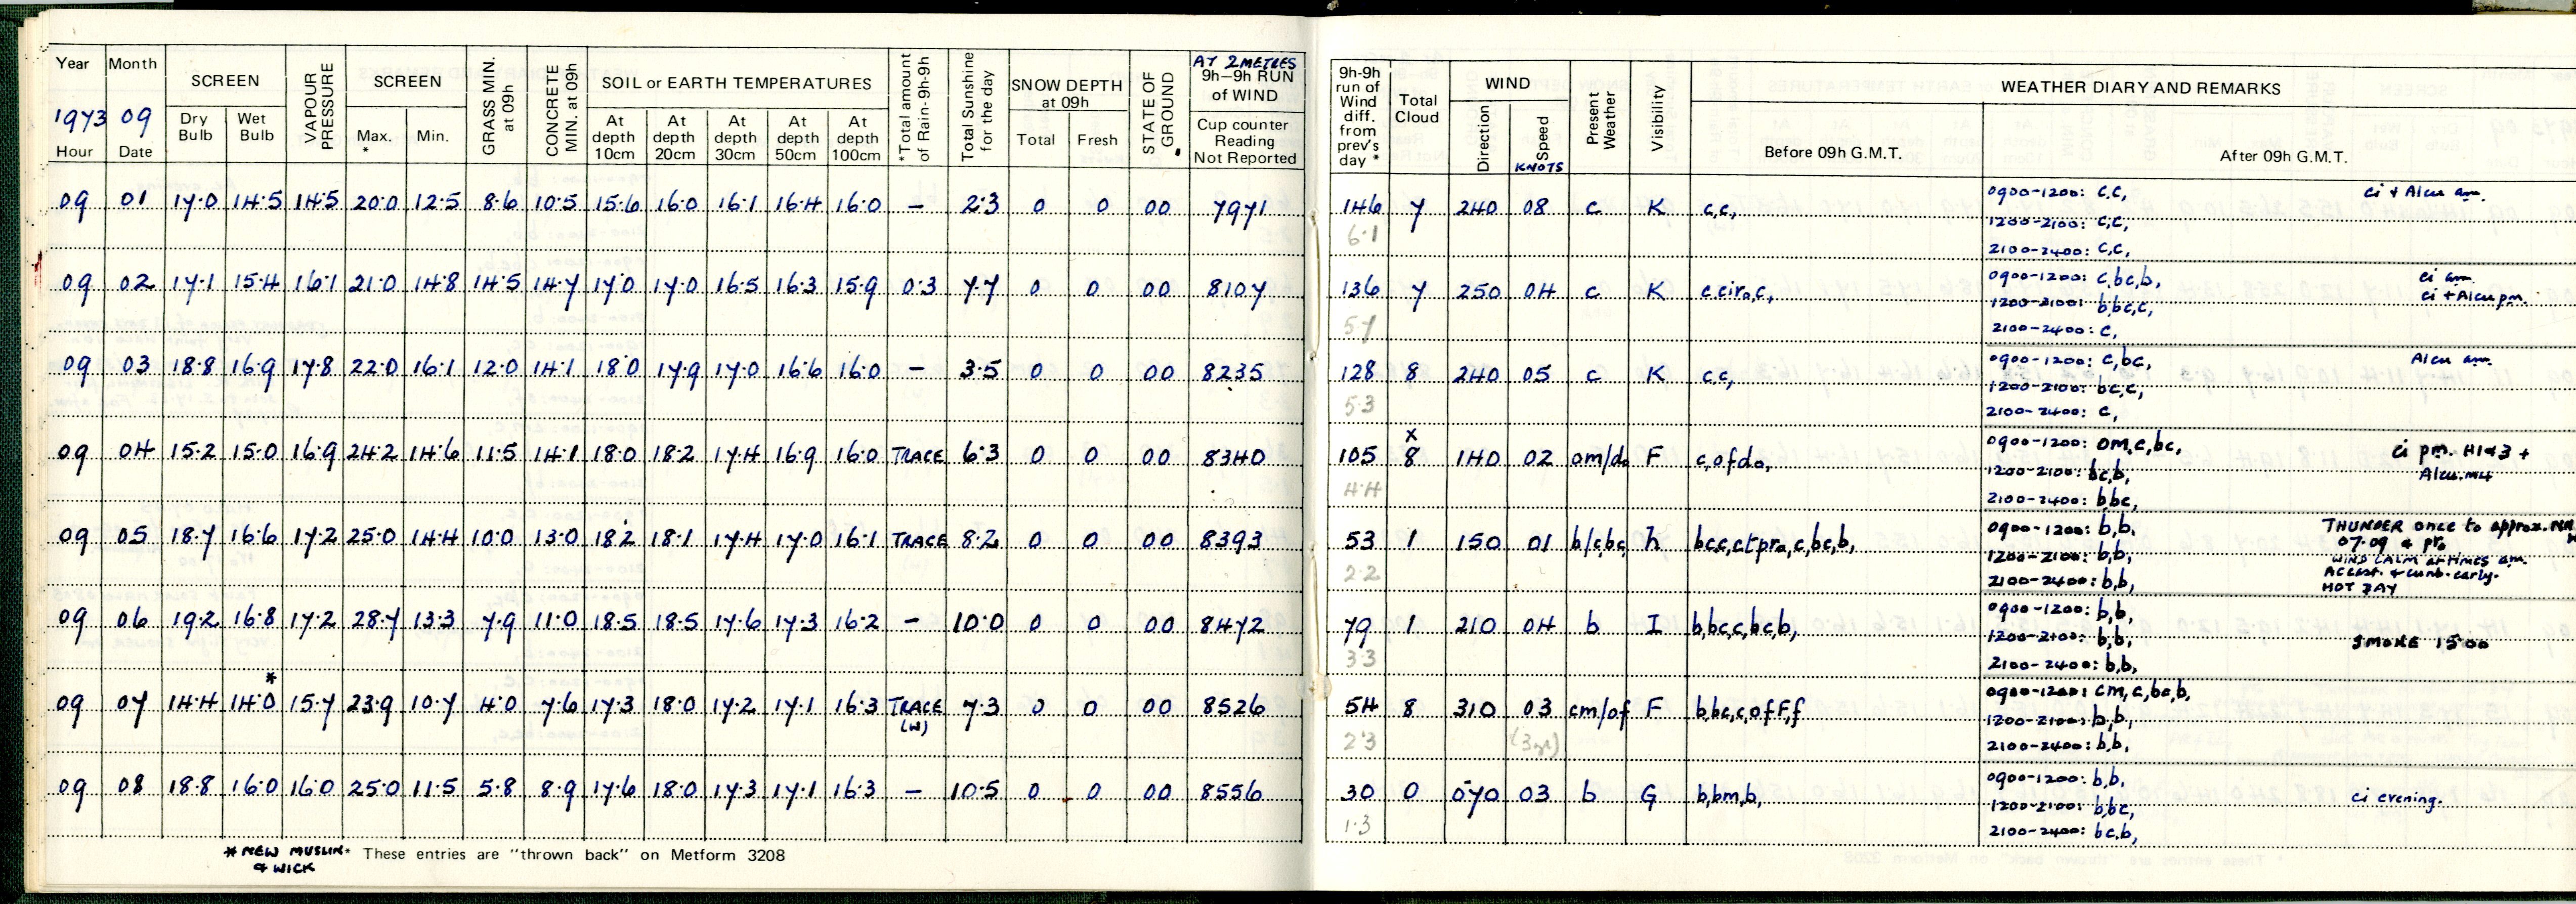 Year Month SCREEN VAPOUR PRESSURE SCREEN GRASS MIN. at 09h CONCRETE MIN. at 09h SOIL or EARTH TEMPERATURES *Total amount of Rain-9h-9h Total Sunshine for the day SNOW DEPTH at 09h STATE OF GROUND AT 2 METRES 9h–9h RUN of WIND
1973 09 Dry Bulb Wet Bulb Max. * Min. At depth 10cm At depth 20cm At depth 30cm At depth 50cm At depth 100cm Total Fresh Cup counter Reading Not Reported
Hour Date
09 01 17.0 14.5 14.5 20.0 12.5 8.6 10.5 15.6 16.0 16.1 16.4 16.0 – 2.3 0 0 00 7971
09 02 17.1 15.4 16.1 21.0 14.8 14.5 14.7 17.0 17.0 16.5 16.3 15.9 0.3 7.7 0 0 00 8107
09 03 18.8 16.9 17.8 22.0 16.1 12.0 14.1 18.0 17.9 17.0 16.6 16.0 – 3.5 0 0 00 8235
09 04 15.2 15.0 16.9 24.2 14.6 11.5 14.1 18.0 18.2 17.4 16.9 16.0 TRACE 6.3 0 0 00 8340
09 05 18.7 16.6 17.2 25.0 14.4 10.0 13.0 18.2 18.1 17.4 17.0 16.1 TRACE 8.2 0 0 00 8393
09 06 19.2 16.8 17.2 28.7 13.3 7.9 11.0 18.5 18.5 17.6 17.3 16.2 – 10.0 0 0 00 8472
*
09 07 14.4 14.0 15.7 23.9 10.7 4.0 7.6 17.3 18.0 17.2 17.1 16.3 TRACE 7.3 0 0 00 8526
(W)
09 08 18.8 16.0 16.0 25.0 11.5 5.8 8.9 17.6 18.0 17.3 17.1 16.3 – 10.5 0 0 00 8556
* NEW MUSLIN & WICK
* These entries are "thrown back" on Metform 3208
9h-9h run of Wind diff. from prev's day * Total Cloud WIND Present Weather Visibility WEATHER DIARY AND REMARKS
Direction Speed KNOTS Before 09h G.M.T. After 09h G.M.T.
146 7 240 08 c K c,c, 0900-1200: c,c, ci + Alcu am.
6.1 1200-2100: c,c,
2100-2400: c,c,
136 7 250 04 c K c,cir₀,c, 0900-1200: c,bc,b, ci am.
57 1200-2100: b,bc,c, ci + Alcu pm.
2100-2400: c,
128 8 240 05 c K c,c, 0900-1200: c,bc, Alcu am.
53 1200-2100: bc,c,
2100-2400: c,
x
105 8 140 02 om/d₀ F c,o,f,d₀, 0900-1200: om,c,bc, ci pm. H1&3 +
4.4 1200-2100: bc,b, Alcu. M4
2100-2400: b,bc,
53 1 150 01 b/c,bc h bc,c,ctpr₀,c,bc,b, 0900-1200: b,b, THUNDER once to approx.
2.2 1200-2100: b,b, 07.09 & pr₀
WIND CALM at times am.
2100-2400: b,b, ACcast. + cunb. early.
HOT DAY
79 1 210 04 b I b,bc,c,bc,b, 0900-1200: b,b,
3.3 1200-2100: b,b, SMOKE 1500
2100-2400: b,b,
54 8 310 03 cm/of F b,bc,c,ofF,f 0900-1200: cm,c,bc,b,
2.3 1200-2100: b,b,
2100-2400: b,b,
30 0 070 03 b G b,bm,b, 0900-1200: b,b,
1.3 1200-2100: b,bc, ci evening.
2100-2400: bc,b,